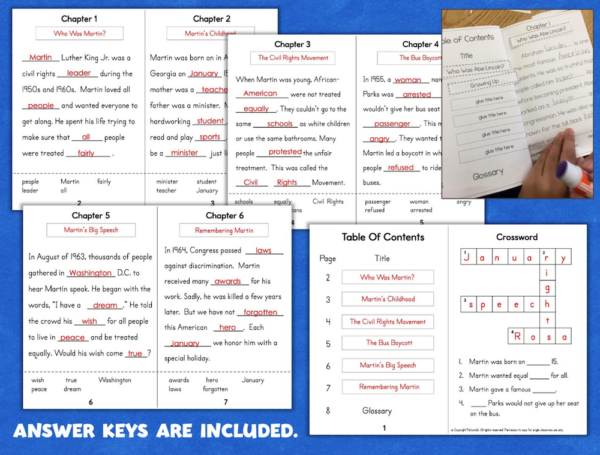 Chapter 1
Who Was Martin?
Martin Luther King Jr. was a
civil rights leader during the
1950s and 1960s. Martin loved all
people and wanted everyone to
get along. He spent his life trying to
make sure that all people
were treated fairly.
people Martin fairly
leader all
2
Chapter 2
Martin's Childhood
Martin was born on in A
Georgia on January 15
mother was a teache
father was a minister. M
hardworking student
read and play sports
be a minister just li
minister student
teacher January
Chapter 3
The Civil Rights Movement
When Martin was young, African-
American were not treated
equally. They couldn't go to the
same schools as white children
or use the same bathrooms. Many
people protested the unfair
treatment. This was called the
Civil Rights Movement.
schools equally Civil Rights
4
Chapter 4
The Bus Boycott
In 1955, a woman nam
Parks was arrested
wouldn't give her seat
passenger. This m
angry. They wanted t
Martin led a boycott in wh
people refused to rid
buses.
passenger woman angry
refused arrested
5
Chapter 5
Martin's Big Speech
In August of 1963, thousands of people
gathered in Washington D.C. to
hear Martin speak. He began with the
words, "I have a dream." He told
the crowd his wish for all people
to live in peace and be treated
equally. Would his wish come true?
wish true Washington
peace dream
6
Chapter 6
Remembering Martin
In 1964, Congress passed laws
against discrimination. Martin
received many awards for his
work. Sadly, he was killed a few years
later. But we have not forgotten
this American hero. Each
January we honor him with a
special holiday.
awards hero January
laws forgotten
7
Table Of Contents
Page Title
2 Who Was Martin?
3 Martin's Childhood
4 The Civil Rights Movement
5 The Bus Boycott
6 Martin's Big Speech
7 Remembering Martin
8 Glossary
1
Crossword
1 January 2 y
right
3 speech
4 Rosa
1. Martin was born on ______ 15.
2. Martin wanted equal ______ for all.
3. Martin gave a famous ______.
4. ____ Parks would not give up her seat
on the bus.
ble of Contents
Title
Who Was Abe Lincoln?
Growing Up
give title here
give title here
give title here
give title here
Glossary
Chapter 1
Who Was Abe Lincoln?
Abraham Lincoln
ANSWER KEYS ARE INCLUDED.